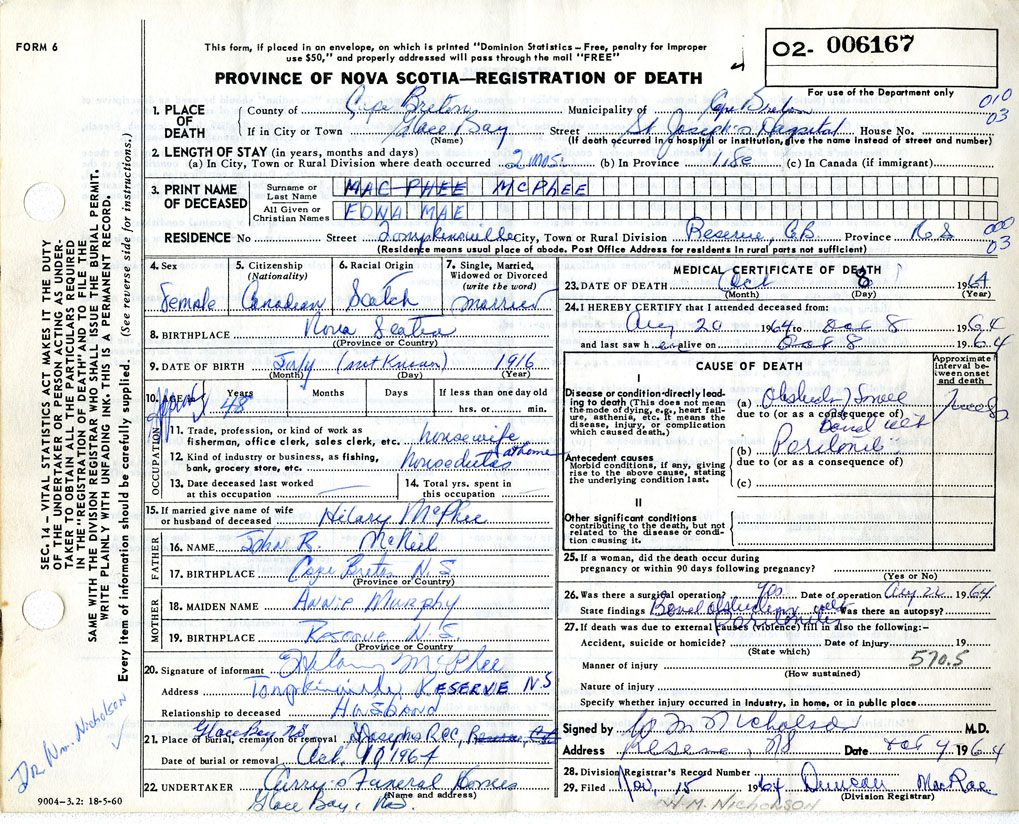 FORM 6
This form, if placed in an envelope, on which is printed "Dominion Statistics – Free, penalty for improper
use $50," and properly addressed will pass through the mail "FREE"
PROVINCE OF NOVA SCOTIA—REGISTRATION OF DEATH
02- 006167
For use of the Department only
010
03
1. PLACE OF DEATH
County of Cape Breton Municipality of Cape Breton
If in City or Town Glace Bay Street St. Joseph's Hospital House No.
(Name) (If death occurred in a hospital or institution, give the name instead of street and number)
2. LENGTH OF STAY (in years, months and days)
(a) In City, Town or Rural Division where death occurred 2 mos. (b) In Province Life (c) In Canada (if immigrant)
3. PRINT NAME OF DECEASED
Surname or Last Name MAC PHEE MCPHEE
All Given or Christian Names EDNA MAE
RESIDENCE No Street Tompkinsville City, Town or Rural Division Reserve, C.B. Province N S
000
03
(Residence means usual place of abode. Post Office Address for residents in rural parts is not sufficient)
4. Sex
Female
5. Citizenship (Nationality)
Canadian
6. Racial Origin
Scotch
7. Single, Married, Widowed or Divorced (write the word)
married
8. BIRTHPLACE Nova Scotia
(Province or Country)
9. DATE OF BIRTH July (not known) 1916
(Month) (Day) (Year)
10. AGE Years Months Days If less than one day old
48 hrs. or min.
OCCUPATION
11. Trade, profession, or kind of work as
fisherman, office clerk, sales clerk, etc. housewife
12. Kind of industry or business, as fishing, at home
bank, grocery store, etc.
13. Date deceased last worked
at this occupation
14. Total yrs. spent in
this occupation
15. If married give name of wife
or husband of deceased Hilary McPhee
FATHER
16. NAME John R. McNeil
17. BIRTHPLACE Cape Breton N.S.
(Province or Country)
MOTHER
18. MAIDEN NAME Annie Murphy
19. BIRTHPLACE Reserve N.S.
(Province or Country)
20. Signature of informant Hilary McPhee
Address Tompkinsville, RESERVE NS
Relationship to deceased Husband
21. Place of burial, cremation or removal Glace Bay NS St Josephs R.C.
Date of burial or removal Oct. 10 1964
22. UNDERTAKER Curry's Funeral Homes
(Name and address)
Glace Bay, N.S.
9004–3.2: 18-5-60
SEC. 14 – VITAL STATISTICS ACT MAKES IT THE DUTY
OF THE UNDERTAKER OR PERSON ACTING AS UNDER-
TAKER TO OBTAIN ALL THE PARTICULARS REQUIRED
IN THE "REGISTRATION OF DEATH" AND TO FILE THE
SAME WITH THE DIVISION REGISTRAR WHO SHALL ISSUE THE BURIAL PERMIT.
WRITE PLAINLY WITH UNFADING INK. THIS IS A PERMANENT RECORD.
Every item of information should be carefully supplied. (See reverse side for instructions.)
Dr Wm. Nicholson
MEDICAL CERTIFICATE OF DEATH
23. DATE OF DEATH Oct 8 1964
(Month) (Day) (Year)
24. I HEREBY CERTIFY that I attended deceased from:
Aug 20 1964 to Oct 8 1964
and last saw h er alive on Oct 8 1964
CAUSE OF DEATH
Approximate interval between onset and death
I
Disease or condition directly leading to death (This does not mean the mode of dying, e.g., heart failure, asthenia, etc. It means the disease, injury, or complication which caused death.)
(a) Obstructed Small
due to (or as a consequence of)
Bowel with
(b) Peritonitis
due to (or as a consequence of)
(c)
Antecedent causes
Morbid conditions, if any, giving rise to the above cause, stating the underlying condition last.
II
Other significant conditions
contributing to the death, but not related to the disease or condition causing it.
25. If a woman, did the death occur during
pregnancy or within 90 days following pregnancy?
(Yes or No)
26. Was there a surgical operation? Yes Date of operation Aug 1964
State findings Bowel obstruction with Was there an autopsy?
Peritonitis
27. If death was due to external causes (violence) fill in also the following:–
Accident, suicide or homicide? Date of injury 19
(State which)
570.5
Manner of injury
(How sustained)
Nature of injury
Specify whether injury occurred in industry, in home, or in public place
Signed by W M Nicholson M.D.
Address Reserve, NS Date Oct 9 1964
28. Division Registrar's Record Number
29. Filed Nov, 15 1964 Duncan MacRae
(Division Registrar)
W.M. NICHOLSON